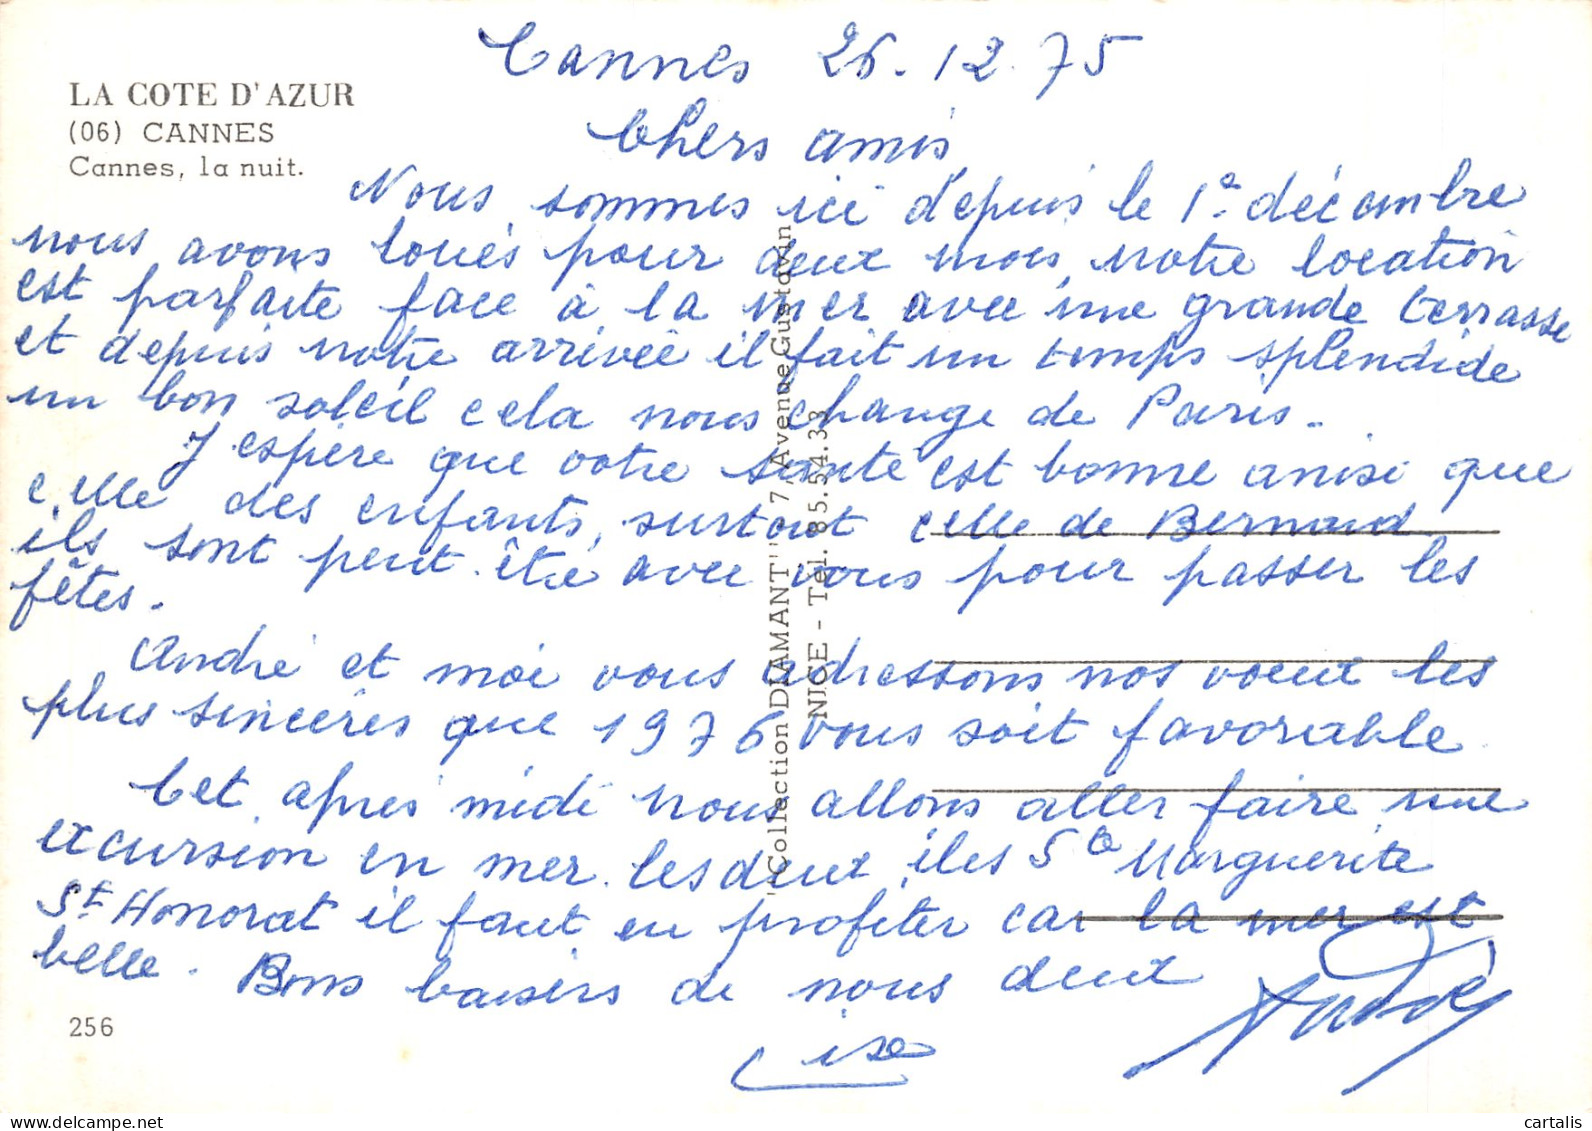 LA COTE D'AZUR
(06) CANNES
Cannes, la nuit.
Cannes 26.12.75
Chers amis
Nous sommes ici depuis le 1e décembre
nous avons loués pour deux mois, notre location
est parfaite face à la mer avec une grande terrasse
et depuis notre arrivée il fait un temps splendide
un bon soleil cela nous change de Paris.
J'espère que votre santé est bonne ainsi que
celle des enfants, surtout celle de Bernard
ils sont peut-être avec vous pour passer les
fêtes.
André et moi vous adressons nos voeux les
plus sincères que 1976 vous soit favorable
Cet après midi nous allons aller faire une
excursion en mer. les deux îles Ste Marguerite
St Honorat il faut en profiter car la mer est
belle. Bons baisers de nous deux
André
"Collection DIAMANT" 7, Avenue Gustavin
NICE - Tél. 85.54.33
256
cartalis